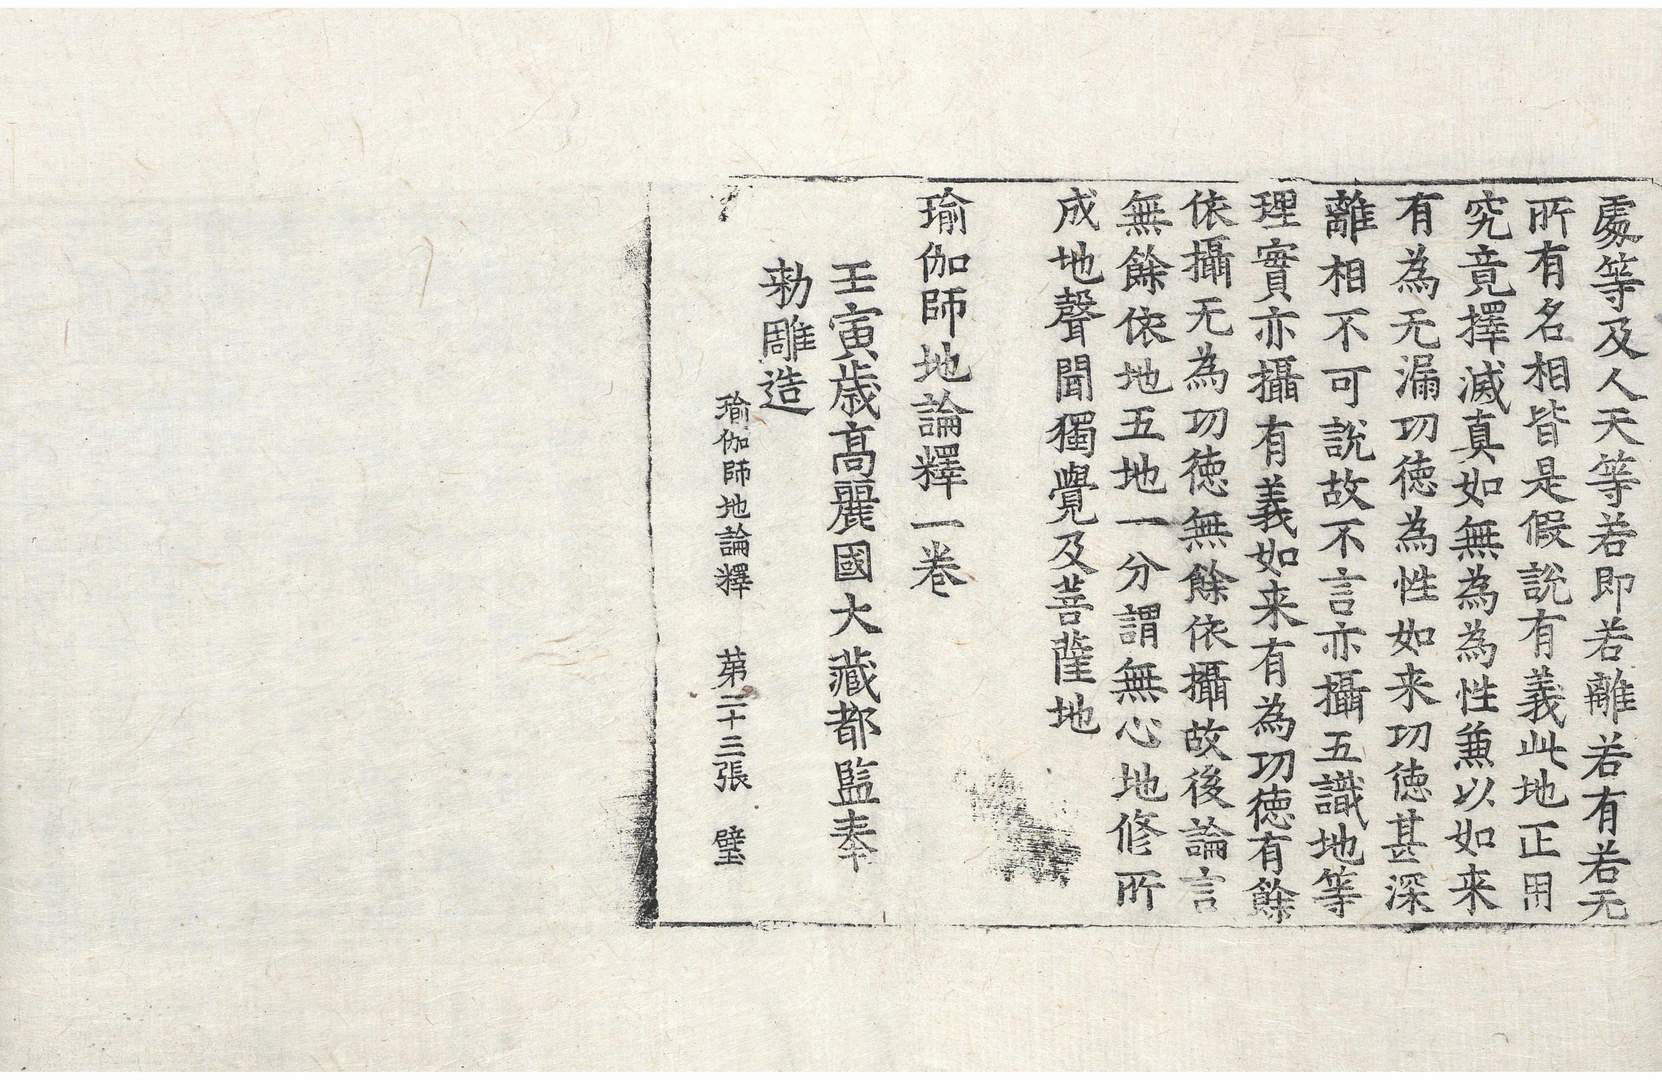 處等及人天等若即若離若有若无
所有名相皆是假說有義此地正用
究竟擇滅真如無為為性兼以如来
有為无漏功德為性如来功德甚深
離相不可說故不言亦攝五識地等
理實亦攝有義如来有為功德有餘
依攝无為功德無餘依攝故後論言
無餘依地五地一分謂無心地修所
成地聲聞獨覺及菩薩地
瑜伽師地論釋一卷
壬寅歲高麗國大藏都監奉
勅雕造
瑜伽師地論釋 苐二十三張 璧